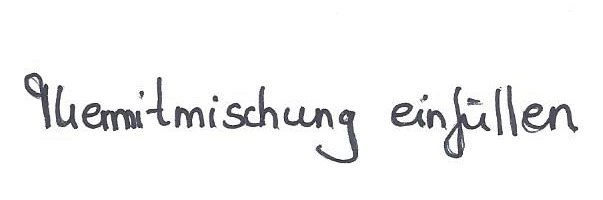 Thermitmischung einfüllen